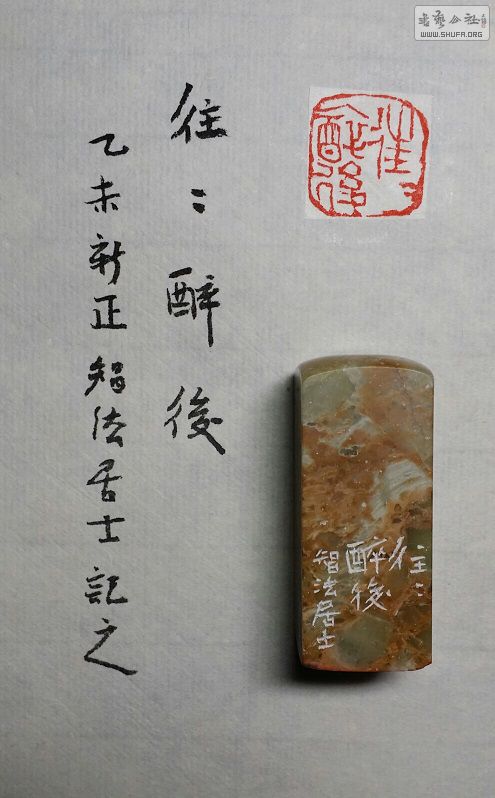 往〻醉後
乙未新正智法居士記之
往〻
醉後
往〻
醉後
智法居士
書藝公社
WWW.SHUFA.ORG